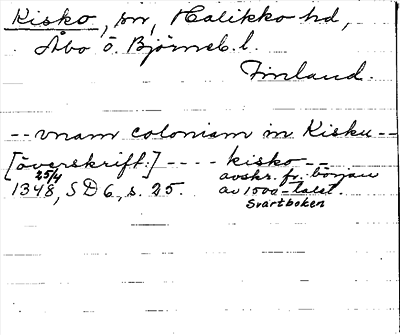 Kisko, sn, Halikko hd,
Åbo o. Björneb. l.
Finland.
-- vnam coloniam in Kisku --
[överskrift:] ---- kisko --
25/4
1348, SD 6, s. 25. avskr. fr. början
av 1500-talet.
Svartboken